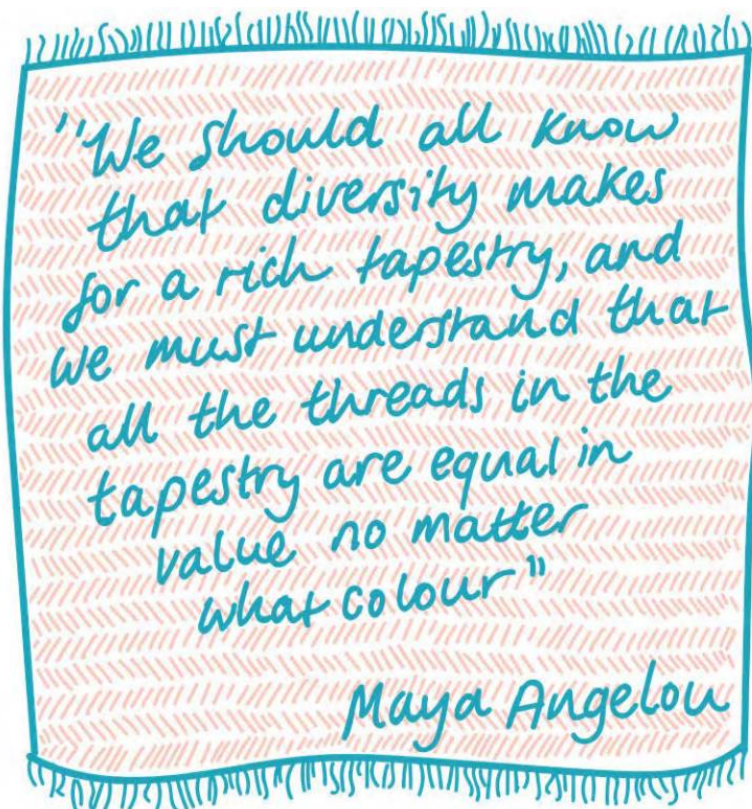 "We should all know
that diversity makes
for a rich tapestry, and
we must understand that
all the threads in the
tapestry are equal in
value no matter
what colour"
Maya Angelou